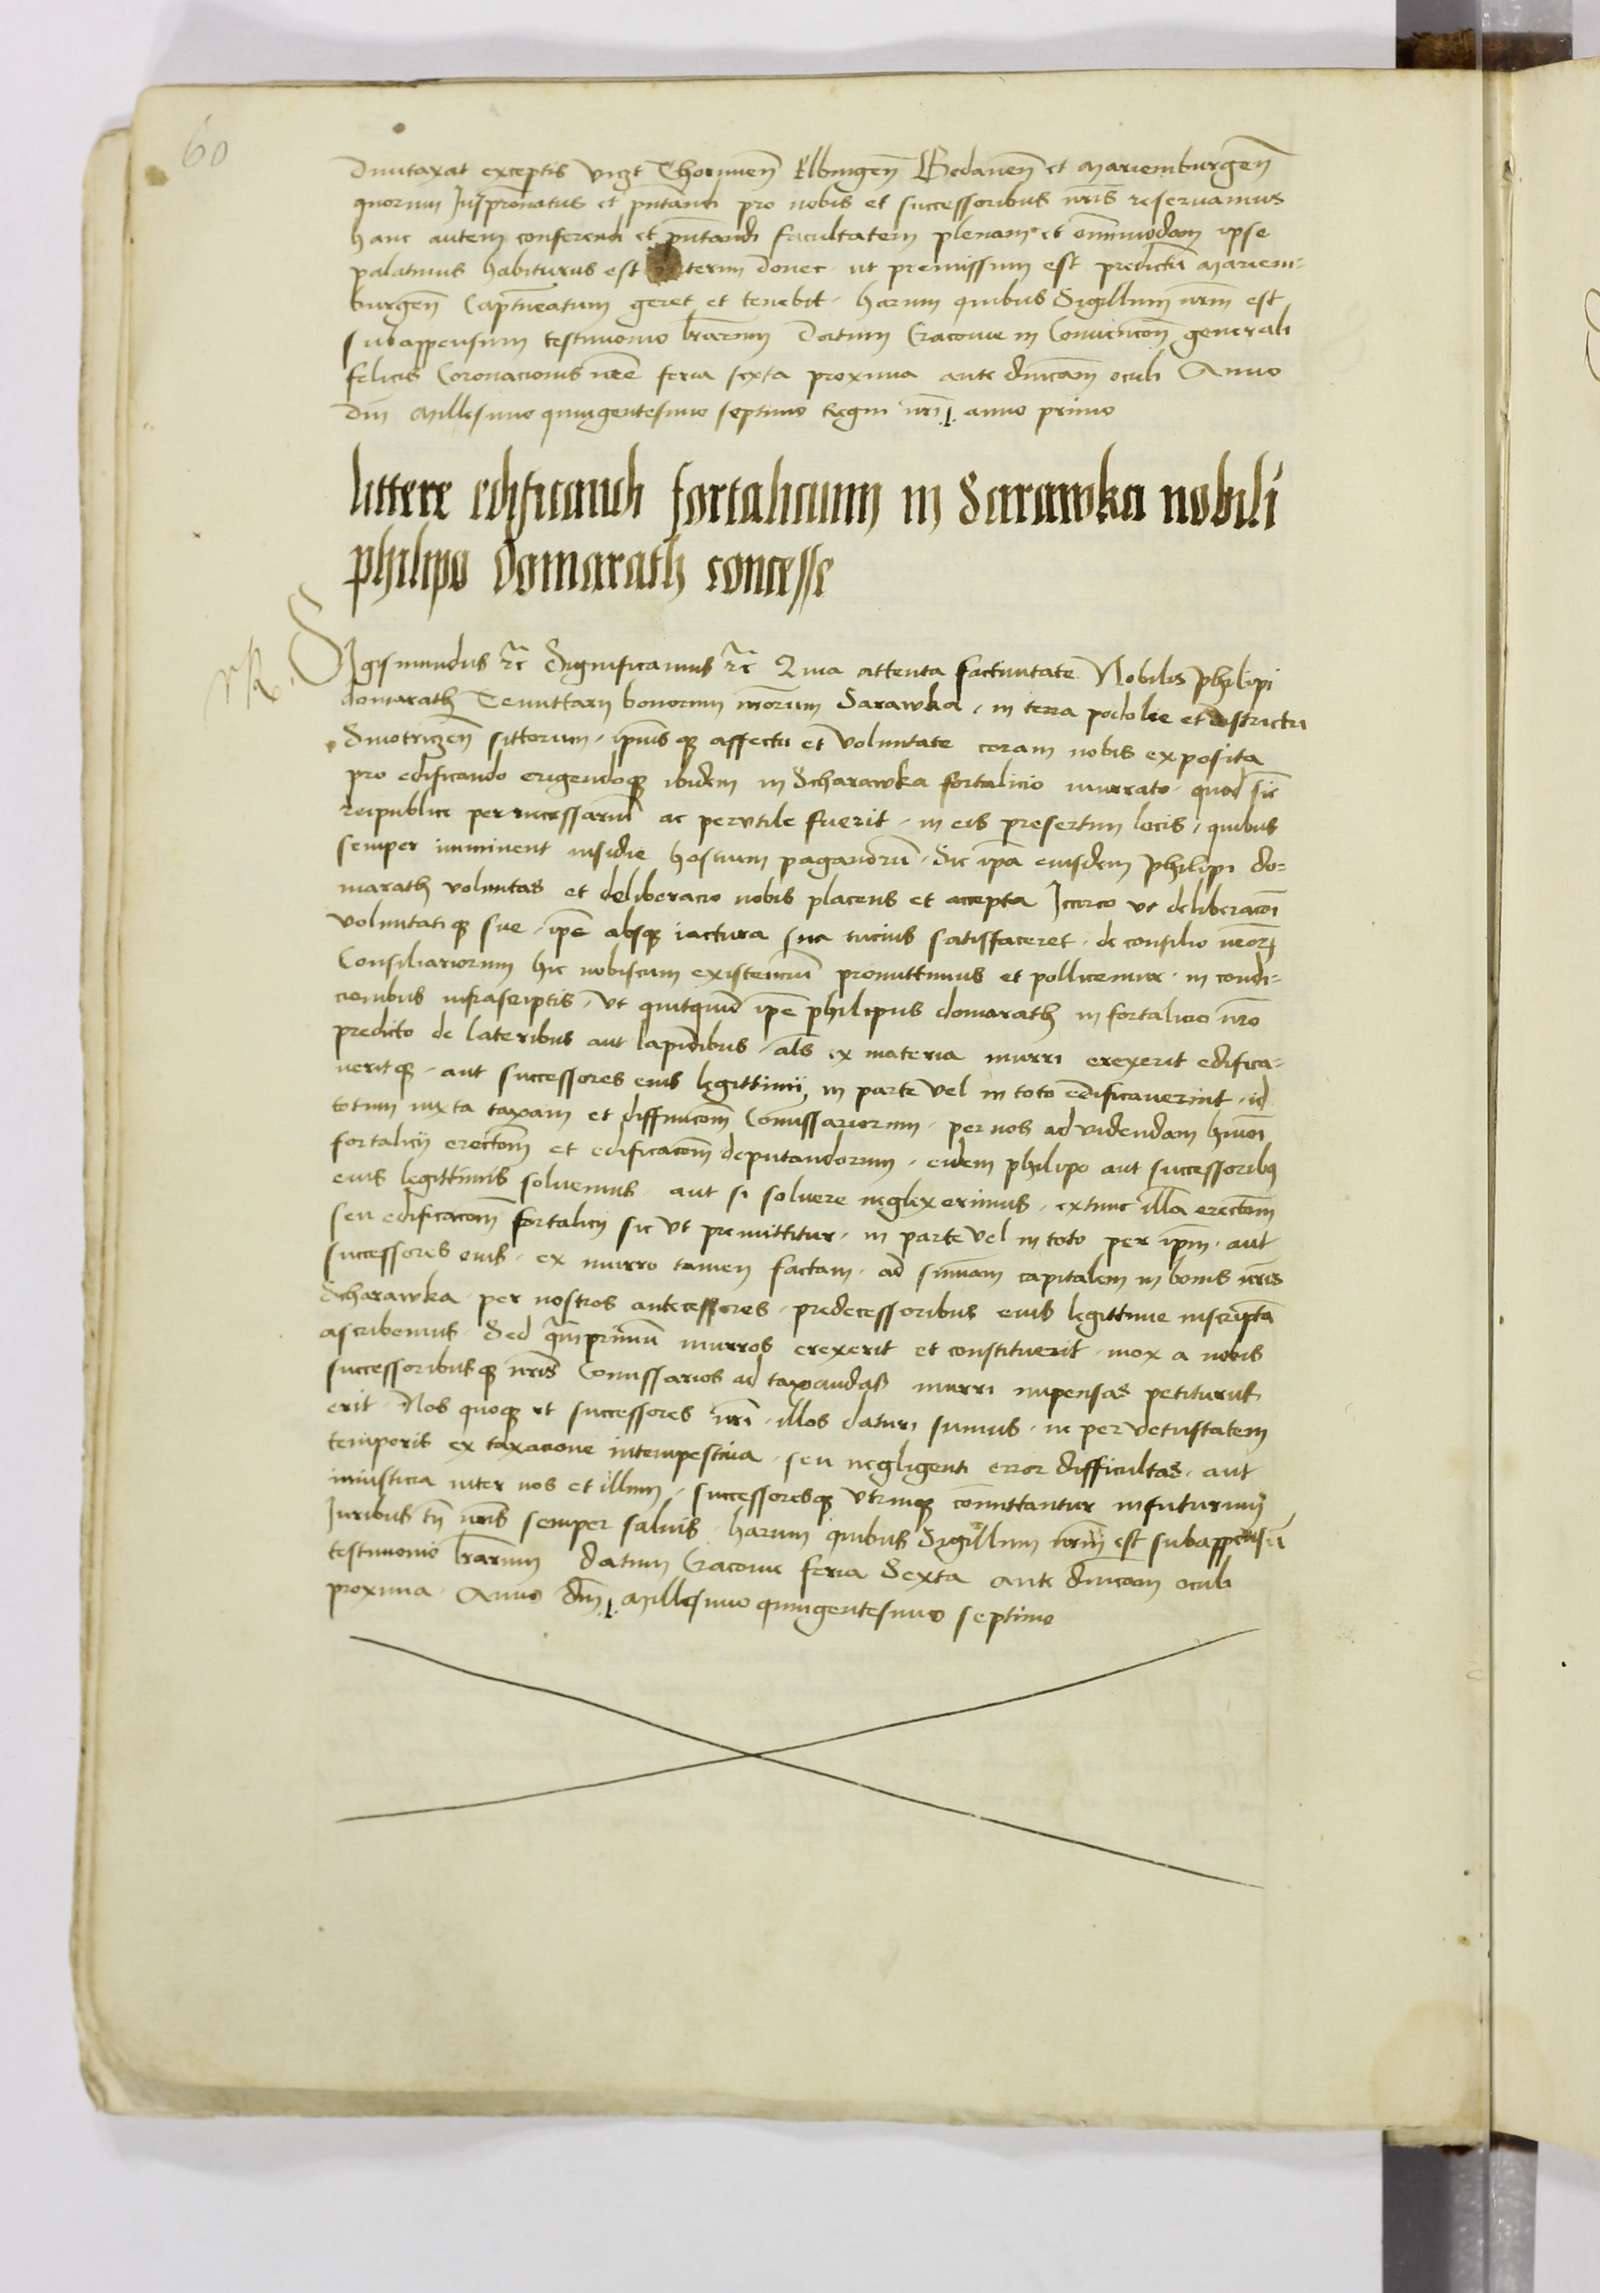 60
Dumtaxat exceptis vicʒt Thorunen̄ Elbingen̄ Gedanen̄ et Mariemburgen̄
quorum Juspr̄onatus et pn̄tandi pro nobis et successoribus nr̄is reservamus
hanc autem conferendi et pn̄tandi facultatem plenam et om̄imodam ipse
palatinus habiturus est interim donec ut premissum est predictū Mariem-
burgen̄ Capitn̄eatum geret et tenebit. harum quibus Sigillum nr̄m est
subappensum testimonio lr̄arum Datum Cracovie in Convencōn generali
felicis Coronacionis nr̄e feria sexta proxima ante dn̄icam oculi Anno
Dn̄i Millesimo quingentesimo septimo Regni nr̄i anno primo
littere edificandi fortalicium in Sarawka nobili
philipo Domarath concesse
Sigismundus ꝛc̄ Significamus ꝛc̄ Quia attenta factivitate Nobilis philipi
domarath Tenuttarij bonorum nr̄orum Sarawka, in terra podolie et districtu
Smotriczen̄ sittorum. ipsiusqꝫ affectu et voluntate coram nobis exposita
pro edificando erigendoqꝫ ibidem in Scharawka fortalicio murrato. quod sic
reipublice pernecessariū ac perutile fuerit. in eis presertim locis, quibus
semper imminent insidie hostium paganorū. Sic ip̄a eiusdem philipi do-
marath voluntas et deliberacio nobis placens et accepta Iccirco ut deliberacōi
voluntatiqꝫ sue. ip̄e absqꝫ iactura sua tucius satisfaceret. de consilio nr̄orꝫ
Consiliariorum hic nobiscum existenciū promittimus et pollicemur. in condi-
cionibus infrascriptis, ut quitquid ip̄e philipus domarath in fortalicio nr̄o
predicto de lateribus aut lapidibus, al̄s ex materia murri erexerit edifica-
veritqꝫ. aut successores eius legittimij, in parte vel in toto edificaverint. id
totum iuxta taxam et diffinicōem Comissariorum. per nos ad videndam hm̄oi
fortalicij erectōem et edificacōem deputandorum. eidem philipo aut successoribꝫ
eius legittimis solvemus. aut si solvere neglexerimus. extunc illā erectōem
seu edificacōem fortalicij sic ut premittitur. in parte vel in toto per ip̄m. aut
successores eius. ex murro tamen factam. ad sum̄am capitalem in bonis nr̄is
Scharawka. per nostros antecessores. predecessoribus eius legittime inscriptā
ascribemus. Sed q̄mprimū murros erexerit et constituerit. mox a nobis
successoribusqꝫ nr̄is Comissarios ad taxandas murri impensas petiturus
erit. Nos quoqꝫ et successores nr̄i. illos daturi sumus. ne per vetustatem
temporis ex taxacione intempestiva. seu negligenti error difficultas. aut
iniusticia inter nos et illum. successoresqꝫ utrinqꝫ com̄ittantur infuturum,
Juribus tn̄ nr̄is semper salvis. harum quibus Sigillum nr̄m est subappensū
testimonio lr̄arum Datum Cracovie feria Sexta ante dn̄icam oculi
proxima. Anno dn̄i Millesimo quingentesimo septimo